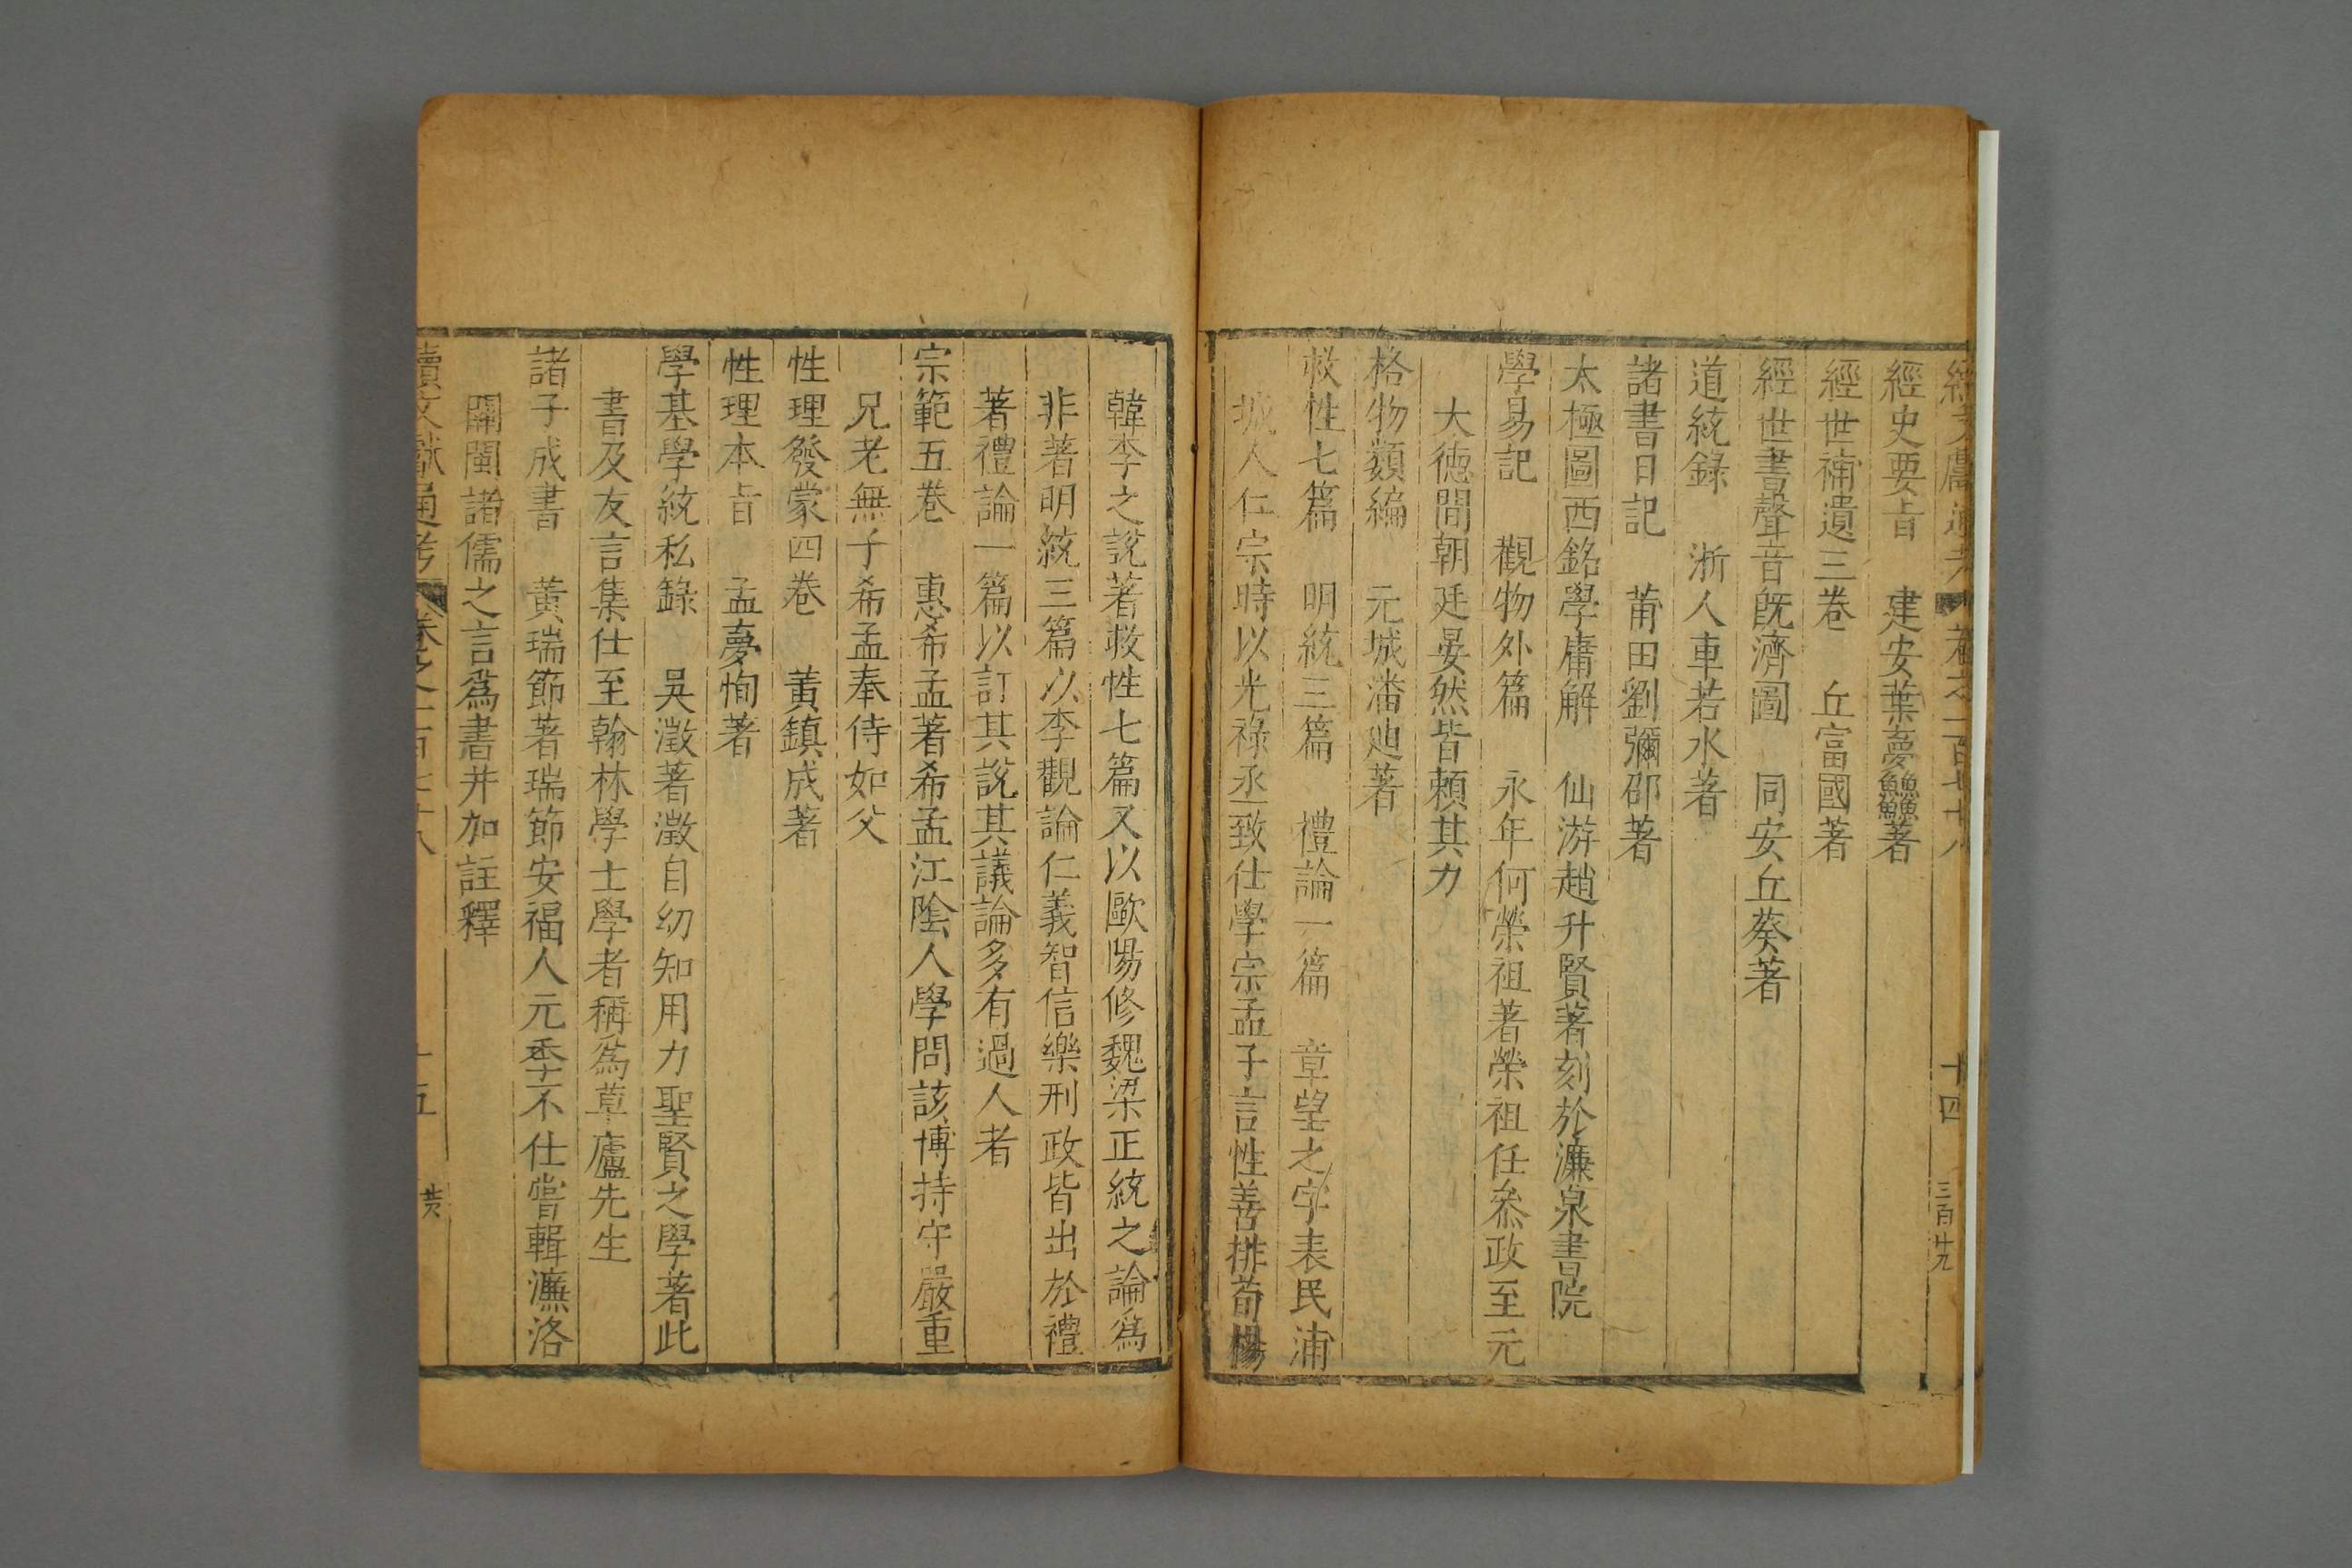 續文獻通考 卷之一百七十八 十四 三百廿九
經史要旨 建安葉夢鱻著
經世補遺三卷 丘富國著
經世書聲音旣濟圖 同安丘葵著
道統錄 浙人車若水著
諸書日記 莆田劉彌邵著
太極圖西銘學庸解 仙游趙升賢著刻於濂泉書院
學易記 觀物外篇 永年何榮祖著榮祖任叅政至元
大德間朝廷晏然皆頼其力
格物類編 元城潘廸著
救性七篇 明統三篇 禮論一篇 章望之字表民浦
城人仁宗時以光祿丞致仕學宗孟子言性善排荀楊
韓李之說著救性七篇又以歐陽修魏梁正統之論爲
非著明統三篇以李觀論仁義智信樂刑政皆出於禮
著禮論一篇以訂其說其議論多有過人者
宗範五卷 惠希孟著希孟江陰人學問該博持守嚴重
兄老無子希孟奉侍如父
性理發蒙四卷 黃鎮成著
性理本旨 孟夢恂著
學基學統私錄 吳澂著澂自幼知用力聖賢之學著此
書及友言集仕至翰林學士學者稱爲草廬先生
諸子成書 黃瑞節著瑞節安福人元季不仕嘗輯濂洛
關閩諸儒之言爲書并加註釋
續文獻通考 卷之一百七十八 十五